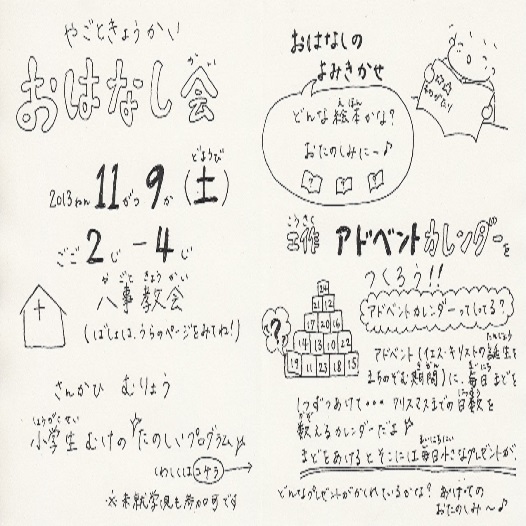 やごときょうかい
おはなし会
かい
どようび
2013ねん 11がつ 9か (土)
ごご 2じ-4じ
やごときょうかい
八事教会
(ばしょは、うらのページをみてね!)
さんかひ むりょう
しょうがくせい
小学生 むけの たのしいプログラム
くわしくは コチラ →
※未就学児も参加可です
おはなしの
よみきかせ
えほん
どんな絵本かな?
おたのしみに~♪
こうさく
工作 アドベントカレンダーを
つくろう!!
アドベントカレンダーってしってる?
24
21 12
17 20 16
14 13 10 22
19 11 23 18 15
?
たんじょう
アドベント(イエス・キリストの誕生を
きかん まいにち
まちのぞむ期間)に、毎日まどを
にっすう
1つずつあけて・・・クリスマスまでの日数を
かぞ
数えるカレンダーだよ
まいにちちい
まどをあけるとそこには毎日小さなプレゼントが。
どんなプレゼントがかくれているかな? あけての
おたのしみ~♪